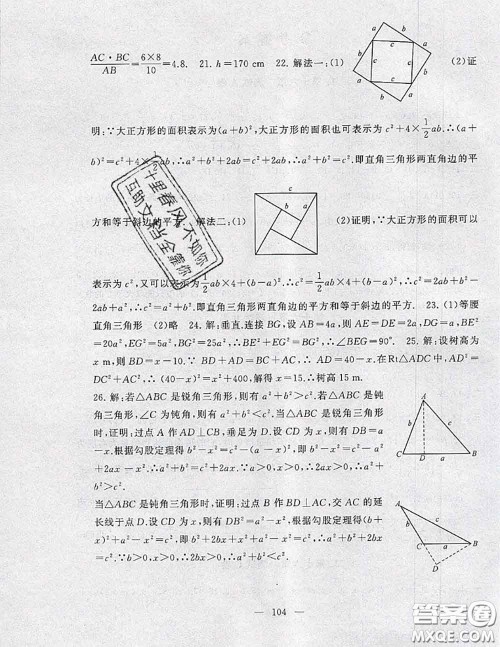 AC·BC/AB=6×8/10=4.8. 21. h=170 cm 22. 解法一:(1) (2)证
明:∵大正方形的面积表示为(a+b)²,大正方形的面积也可表示为c²+4×1/2ab,∴(a+
b)²=c²+4×1/2ab,∴a²+b²+2ab=c²+2ab,∴a²+b²=c².即直角三角形两直角边的平
方和等于斜边的平方. 解法二:(1) (2)证明,∵大正方形的面积可以
表示为c²,又可以表示为1/2ab×4+(b-a)²,∴c²=1/2ab×4+(b-a)²,c²=2ab+b²-
2ab+a²,∴c²=a²+b².即直角三角形两直角边的平方和等于斜边的平方. 23. (1)等腰
直角三角形 (2)略 24. 解:垂直.连接BG,设AB=4a,则AE=DE=2a,DG=a,BE²
=20a²,EG²=5a²,BG²=25a²,∴BE²+EG²=BG²,∴∠BEG=90°. 25. 解:设树高为
x m,则BD=x-10.∵BD+AD=BC+AC,∴AD=40-x.在Rt△ADC中,AD²=
DC²+AC²,∴(40-x)²=400+x²,解得x=15.∴树高15 m.
26. 解:若△ABC是锐角三角形,则有a²+b²>c².若△ABC是钝
角三角形,∠C为钝角,则有a²+b²<c².当△ABC是锐角三角
形时,证明:过点A作AD⊥CB,垂足为D.设CD为x,则有DB=a
-x.根据勾股定理得b²-x²=c²-(a-x)²,即b²-x²=c²-a²
+2ax-x².∴a²+b²=c²+2ax.∵a>0,x>0,∴2ax>0.∴a²+
b²>c².
当△ABC是钝角三角形时,证明:过点B作BD⊥AC,交AC的延
长线于点D.设CD为x,则有DB²=a²-x².根据勾股定理得(b+
x)²+a²-x²=c².即b²+2bx+x²+a²-x²=c².∴a²+b²+2bx=
c².∵b>0,x>0,∴2bx>0,∴a²+b²<c².
— 104 —
十里春风不如你
互助文档全靠你
答案圈
MXQE.COM